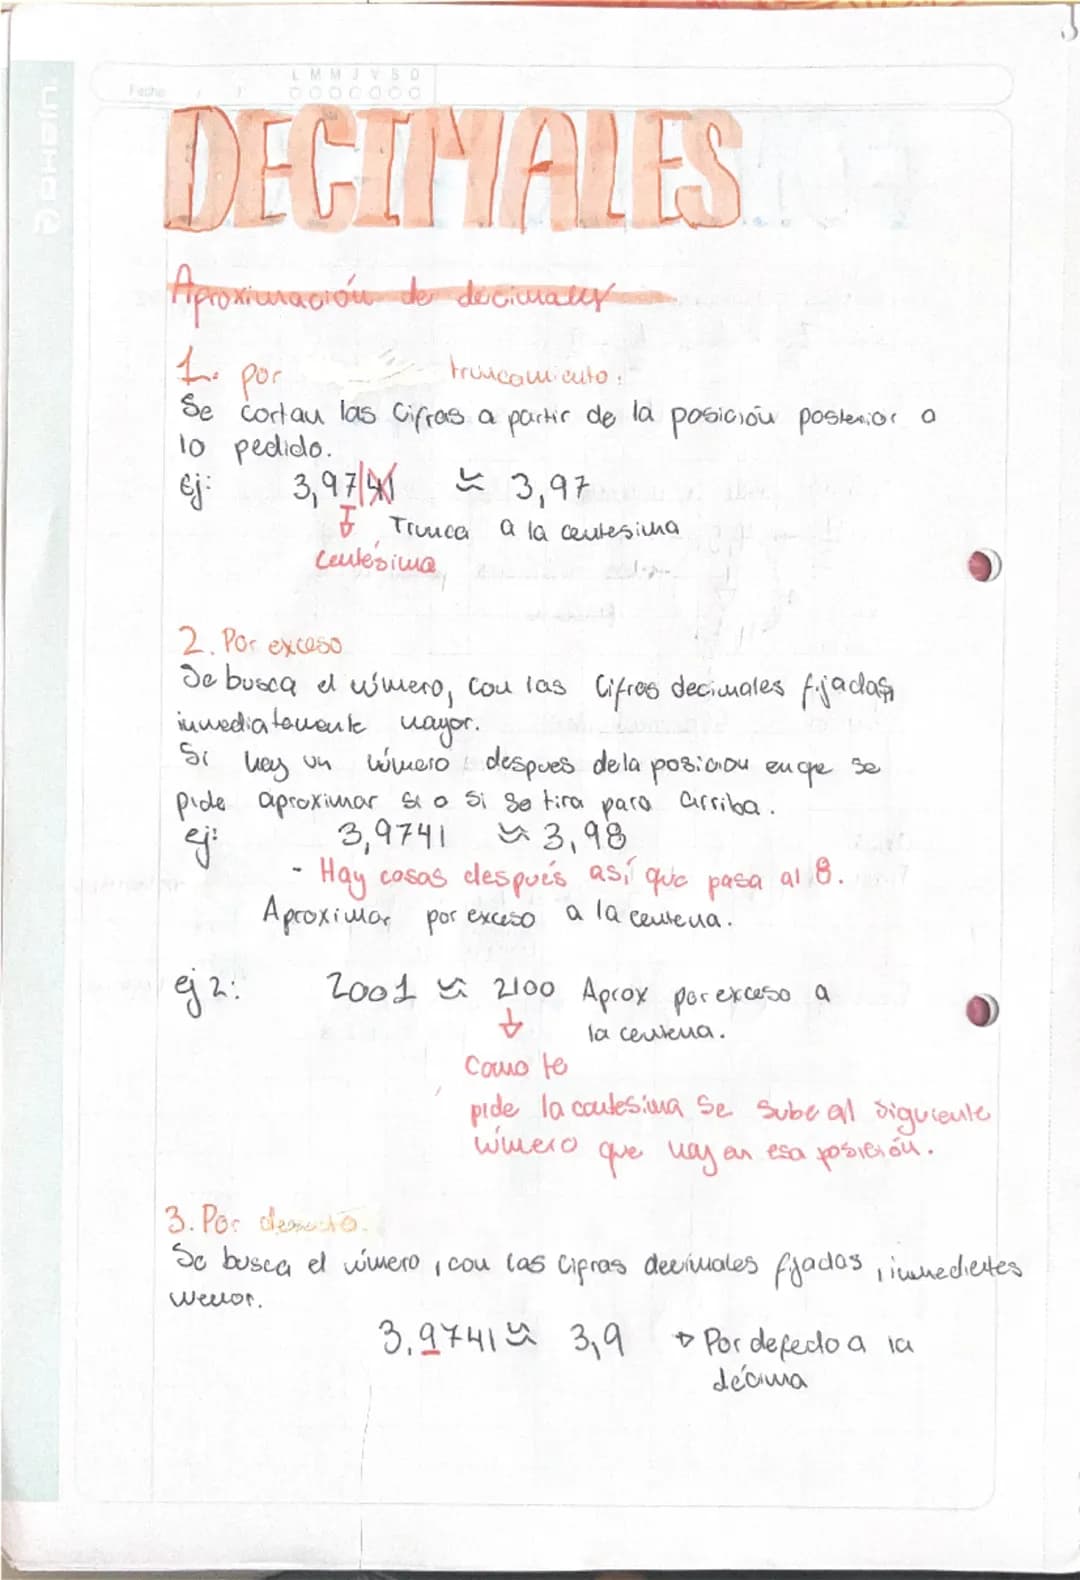 Fecha
L M M J V S D
DECIMALES
Aproximación de decimales
1. por truncamiento:
Se cortan las cifras a partir de la posición posterior a
lo pedido.
Ej: 3,97|41 ≈ 3,97
Trunca a la centesima
Centésima
2. Por exceso
Se busca el número, con las Cifras decimales fijadas,
inmediatamente mayor.
Si hay un número despues de la posicion en que se
pide aproximar si o si se tira para arriba.
ej: 3,9741 ≈ 3,98
- Hay cosas después así que pasa al 8.
Aproximar por exceso a la centena.
ej 2: 2001 ≈ 2100 Aprox por exceso a
la centena.
Como te
pide la centesima se sube al siguiente
número que hay en esa posición.
3. Por defecto.
Se busca el número, con las cifras decimales fijadas, inmedientes
menor.
3,9741 ≈ 3,9 → Por defecto a la
décima